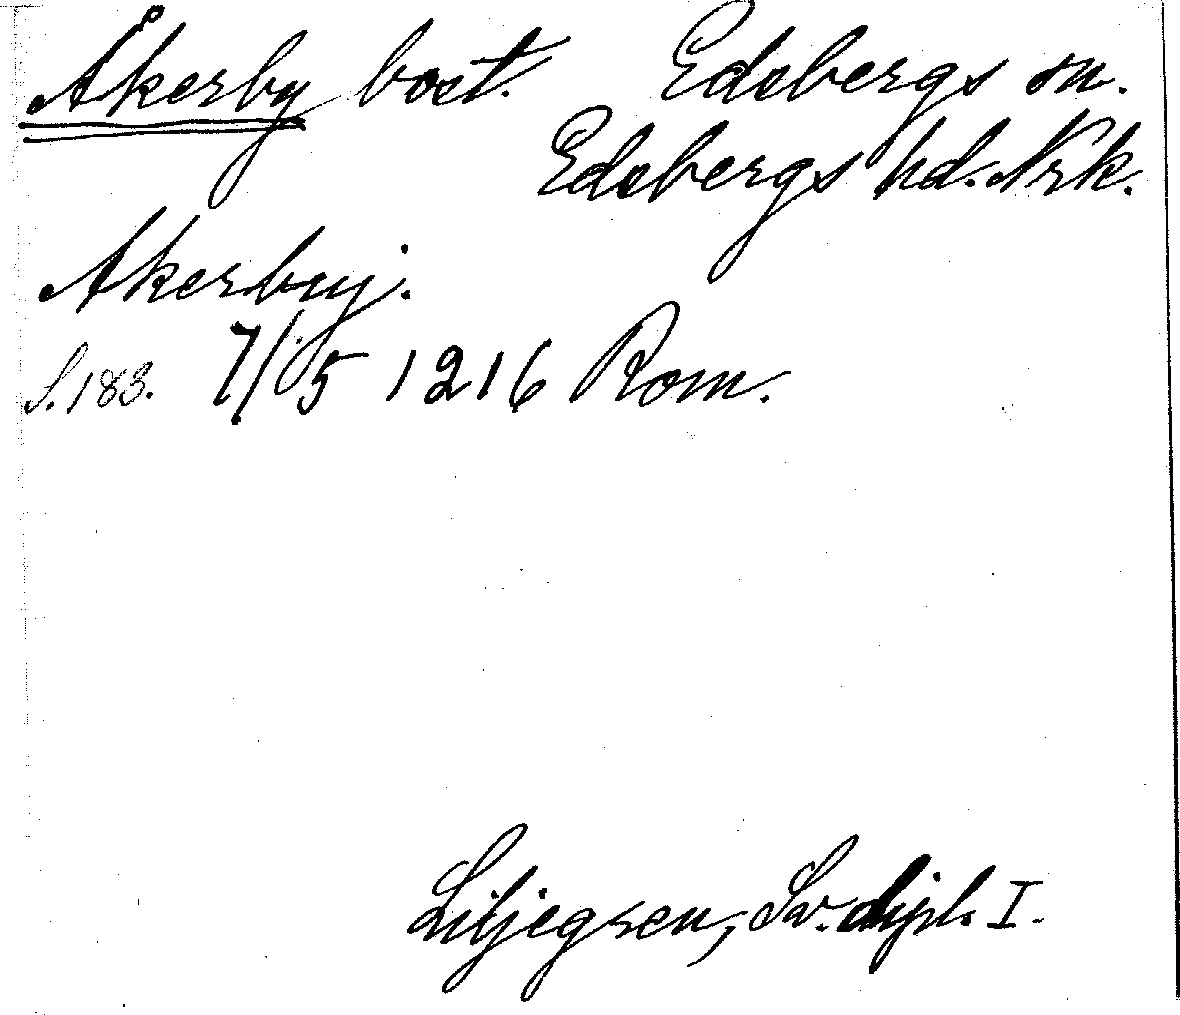 Åkerby bost. Edsbergs sn.
Edsbergs hd. Nrk.
Akerbuj.
S. 183. 7/5 1216 Rom.
Liljegren, Sv. dipl. I.